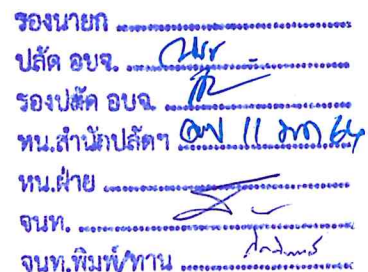 รองนายก
ปลัด อบจ.
รองปลัด อบจ.
หน.สำนักปลัดฯ 11 มค 64
หน.ฝ่าย
จนท.
จนท.พิมพ์/ทาน